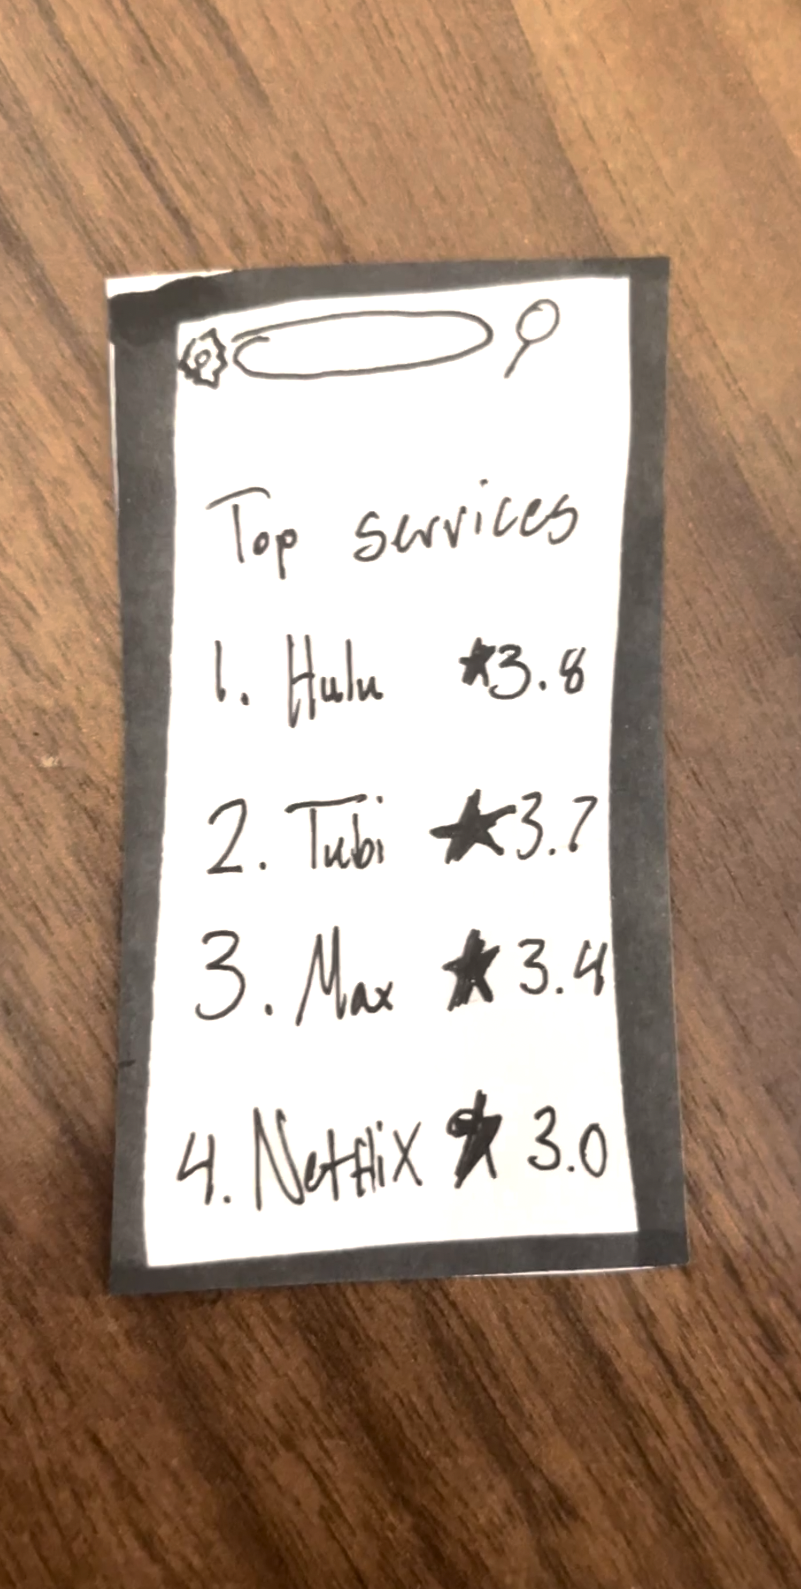 Top services
1. Hulu ★3.8
2. Tubi ★3.7
3. Max ★3.4
4. Netflix ★3.0